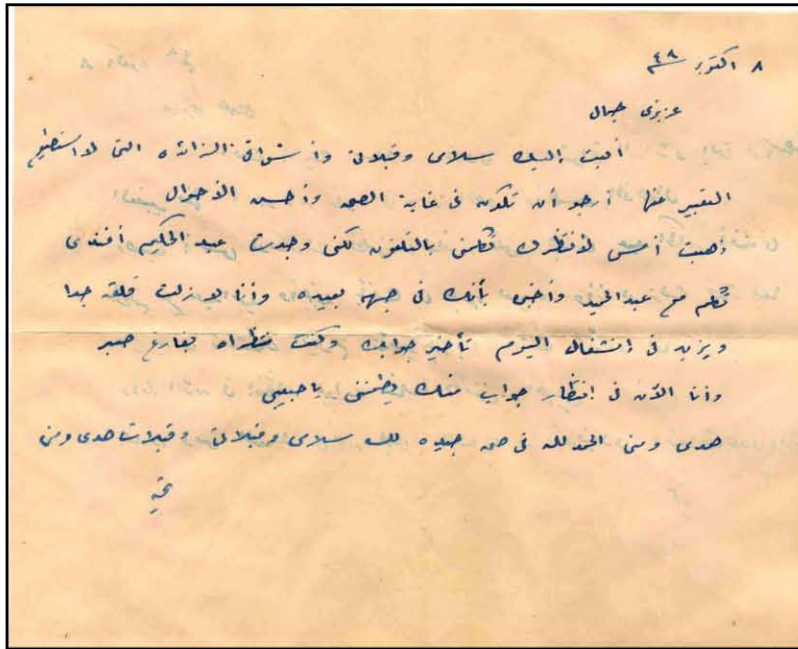 ٨ اكتوبر ٤٨
عزيزى جمال
أبعث إليك سلامى وقبلاتى وأشواقى الزائده التى لا استطيع
التعبير عنها أرجو أن تكون فى غاية الصحه وأحسن الأحوال
ذهبت أمس لأنتظرك تكلمنى بالتلفون لكنى وجدت عبد الحكيم أفندى
تكلم مع عبد الحميد وأخبره بأنك فى جهة بعيده وأنا لا زلت قلقه جدا
ويزيد فى إنشغالى اليوم تأخير جوابك وكنت منتظراه بفارغ صبر
وأنا الآن فى إنتظار جواب منك يطمئننى يا حبيبى
هدى ومنى الحمد لله فى صحه جيده لك سلامى وقبلاتى وقبلات هدى ومنى
تحيه